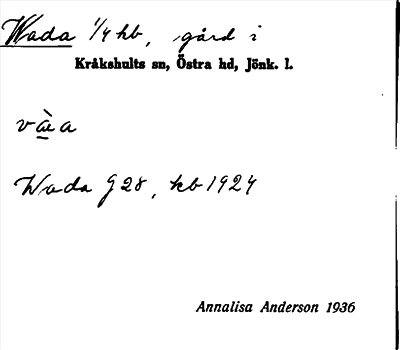 Wada 1/4 hb, gård i
Kråkshults sn, Östra hd, Jönk. l.
væ̀a
Wada J 28, kb 1924
Annalisa Anderson 1936